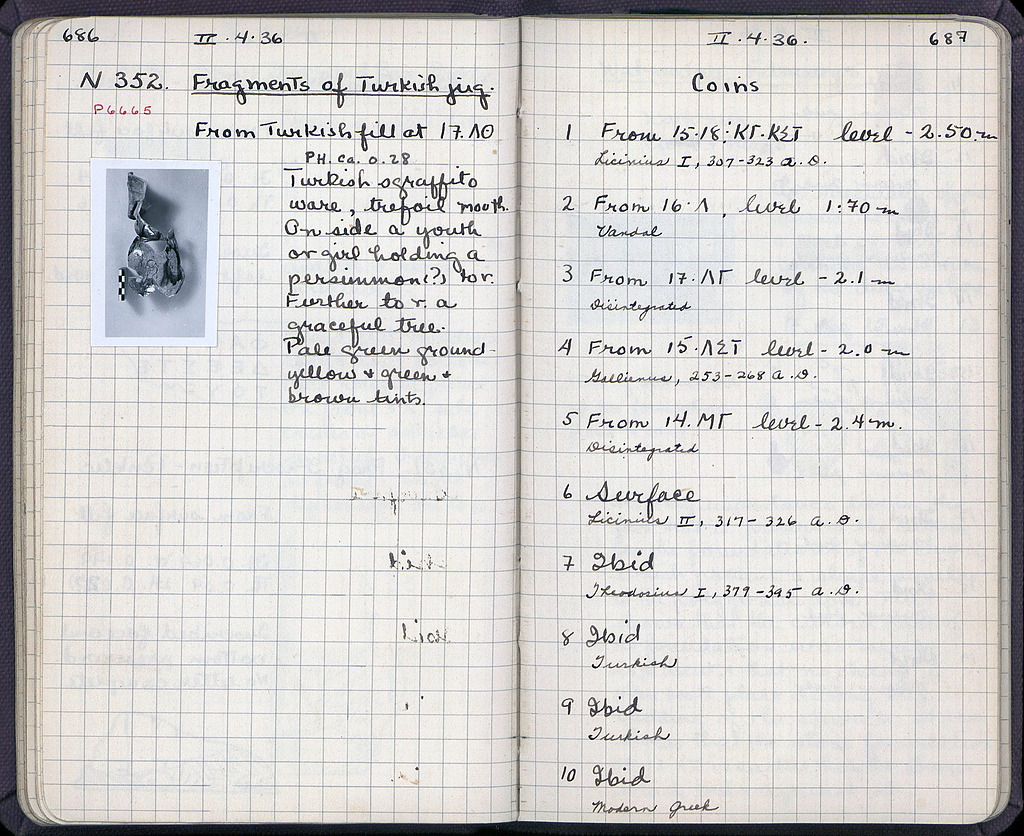 686
II·4·36
N 352. Fragments of Turkish jug.
P6665
From Turkish fill at 17.ΛΘ
PH. ca. 0.28
Turkish sgraffito
ware, trefoil mouth.
On side a youth
or girl holding a
persimmon(?) to r.
Further to r. a
graceful tree.
Pale green ground -
yellow + green +
brown tints.
II·4·36.
687
Coins
1 From 15-18:ΚΓ-ΚΣΤ level - 2.50 m
Licinius I, 307-323 A.D.
2 From 16·Λ, level 1:70 m
Vandal
3 From 17·ΛΓ level - 2.1 m
Disintegrated
4 From 15·ΛΣΤ level - 2.0 m
Gallienus, 253-268 A.D.
5 From 14.ΜΓ level - 2.4 m.
Disintegrated
6 Surface
Licinius II, 317-326 A.D.
7 Ibid
Theodosius I, 379-395 A.D.
8 Ibid
Turkish
9 Ibid
Turkish
10 Ibid
Modern Greek